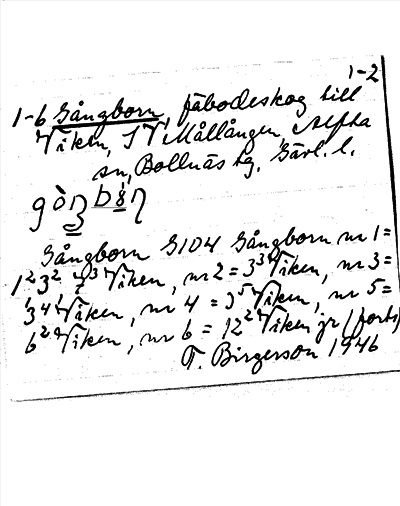 1-2
1-6 Gångborn, fäbodeskog till
Viken, SV Mållången, Alfta
sn, Bollnäs tg. Gävl. l.
Gångborn G1D4 Gångborn nr 1=
1² 3² 7³ Viken, nr 2 = 3³ Viken, nr 3=
3⁴ Viken, nr 4 = 3⁵ Viken, nr 5=
6² Viken, nr 6 = 12² Viken jr (forts)
T. Birgerson 1946